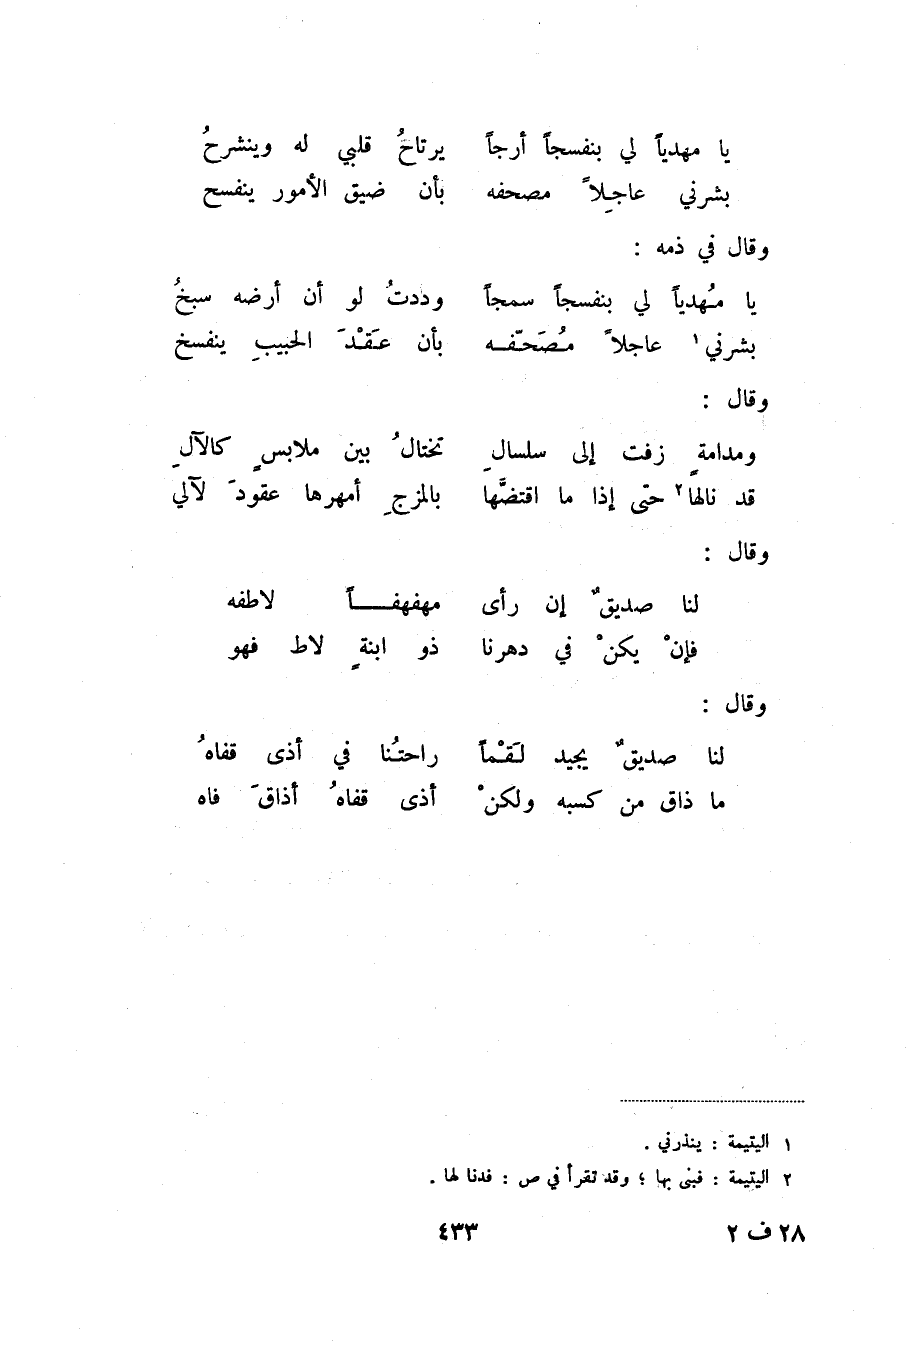 يا مهدياً لي بنفسجاً أرجاً يرتاحُ قلبي له وينشرحُ
بشرني عاجلاً مصحفه بأن ضيق الأمور ينفسح
وقال في ذمه :
يا مُهدياً لي بنفسجاً سمجاً وددتُ لو أن أرضه سبخُ
بشرني١ عاجلاً مُصَحّفه بأن عَقْدَ الحبيبِ ينفسخ
وقال :
ومدامةٍ زفت إلى سلسالِ تختالُ بين ملابسٍ كالآلِ
قد نالها٢ حتى إذا ما اقتضَّها بالمزجِ أمهرها عقودَ لآلي
وقال :
لنا صديقٌ إن رأى مهفهفـــاً لاطفه
فإنْ يكنْ في دهرنا ذو ابنةٍ لاط فهو
وقال :
لنا صديقٌ يجيد لَقْماً راحتُنا في أذى قفاهُ
ما ذاق من كسبه ولكنْ أذى قفاهُ أذاقَ فاه
١ اليتيمة : ينذرني .
٢ اليتيمة : فبنى بها ؛ وقد تقرأ في ص : فدنا لها .
٢٨ ف ٢ ٤٣٣